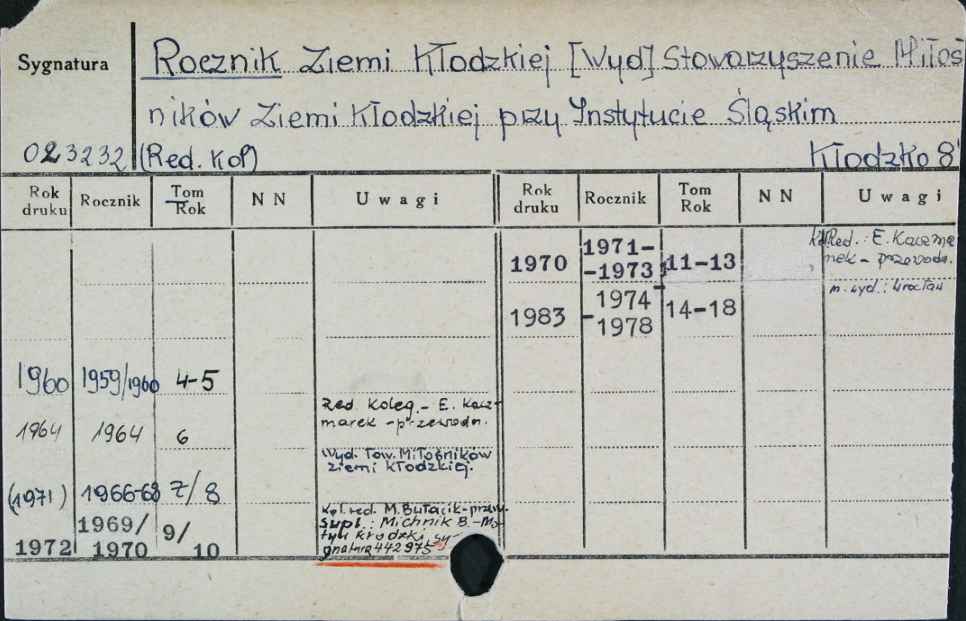 Sygnatura
Rocznik Ziemi Kłodzkiej [Wyd] Stowarzyszenie Miłoś
ników Ziemi Kłodzkiej przy Instytucie Śląskim
023232 (Red. Kol)
Kłodzko 8°
Rok druku Rocznik Tom Rok NN Uwagi Rok druku Rocznik Tom Rok NN Uwagi
1970 1971- -1973 11-13 Red.: E. Kaczma
rek - przewodn.
m. wyd.: Wrocław
1983 1974 - 1978 14-18
1960 1959/1960 4-5
Red. Koleg. - E. Kacz-
marek - przewodn.
1964 1964 6
Wyd. Tow. Miłośników
ziemi kłodzkiej.
(1971) 1966-68 7/8
Kol. red. M. Butacik - przew.
Supl.: Michnik B. - Mo-
tyle kłodzki sy-
gnatura 442975
1972 1969/ 1970 9/ 10